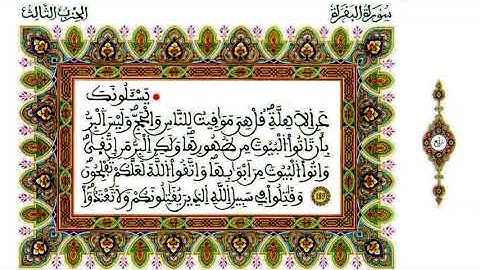 سورة البقرة
الحزب الثالث
يَسْـَٔلُونَكَ
عَنِ اِلَاهِلَّةِ قُلْ هِيَ مَوَٰقِيتُ لِلنَّاسِ وَالْحَجِّ وَلَيْسَ اَلْبِرُّ
بِأَن تَاتُواْ اُلْبُيُوتَ مِن ظُهُورِهَا وَلَٰكِنِ اِلْبِرُّ مَنِ اِتَّقَىٰ
وَاتُواْ اُلْبُيُوتَ مِنَ اَبْوَٰبِهَا وَاتَّقُواْ اُللَّهَ لَعَلَّكُمْ تُفْلِحُونَ
وَقَٰتِلُواْ فِي سَبِيلِ اِللَّهِ اِلذِينَ يُقَٰتِلُونَكُمْ وَلَا تَعْتَدُوٓاْ